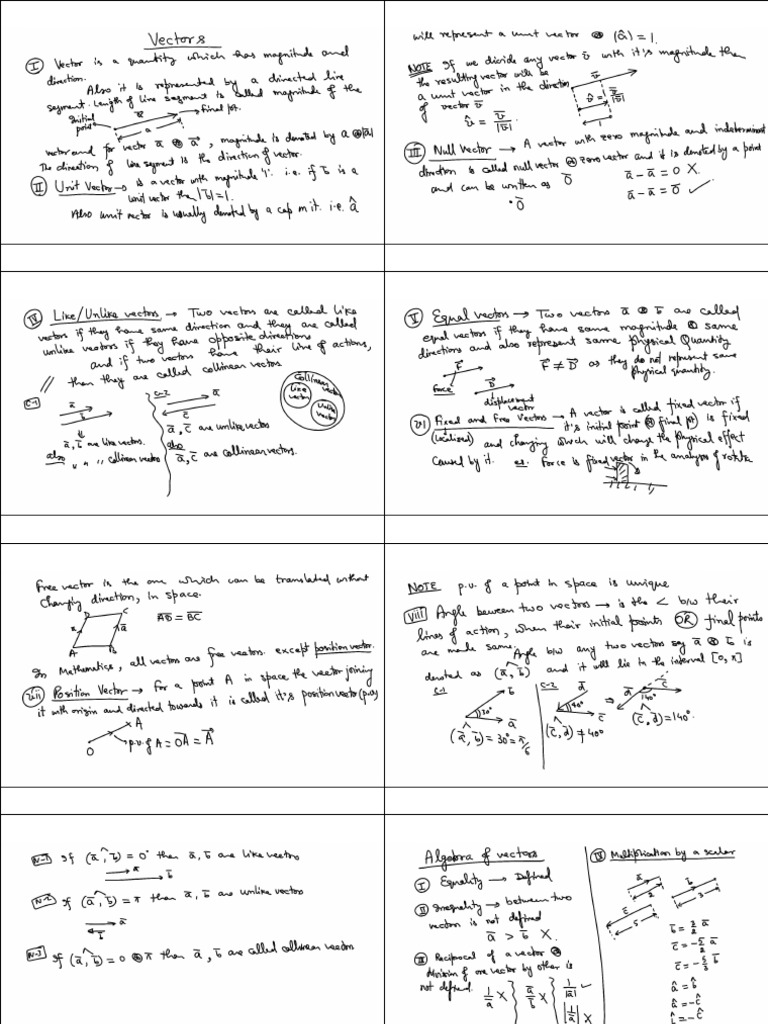 Vectors
I Vector is a quantity which has magnitude and
direction.
Also it is represented by a directed line
segment. Length of line segment is called magnitude of the
Initial point
a̅
final pt.
a
vector and for vector a̅ or a⃗, magnitude is denoted by a or |a̅|
The direction of line segment is the direction of vector.
II Unit Vector → is a vector with magnitude '1'. i.e. if b̅ is a
unit vector the |b̅|=1.
Also unit vector is usually denoted by a cap on it. i.e. â
will represent a unit vector (â) = 1.
NOTE If we divide any vector v̅ with it's magnitude then
the resulting vector will be
a unit vector in the direction
of vector v̅
v̂ = v̅/|v̅|
v̅
v̂ = v̅/|v̅|
1
III Null Vector → A vector with zero magnitude and indeterminant
direction is called null vector or zero vector and it is denoted by a point
and can be written as 0̅
a̅ - a̅ = 0 X
.0̅
a̅ - a̅ = 0̅ ✓
IV Like/Unlike vectors → Two vectors are called like
vectors if they have same direction and they are called
unlike vectors if they have opposite directions
and if two vectors have their line of actions,
then they are called collinear vectors
//
C-1
a̅
b̅
a̅, b̅ are like vectors.
also " " " collinear vectors
C-2
a̅
c̅
a̅, c̅ are unlike vectors
also
a̅, c̅ are collinear vectors.
Collinear vector
Like vector
Unlike vector
V Equal vectors → Two vectors a̅ & b̅ are called
equal vectors if they have same magnitude & same
directions and also represent same physical Quantity
F̅
Force
D̅
displacement vector
F̅ ≠ D̅ as they do not represent same
physical quantity.
VI Fixed and Free Vectors → A vector is called fixed vector if
(localised)
it's initial point or final pt is fixed
and changing which will change the physical effect
caused by it. ex. Force is fixed vector in the analysis of rotatn
Free vector is the one which can be translated without
changing direction, in space.
D
C
a̅
A
B
A̅D̅ = B̅C̅
In Mathematics, all vectors are free vectors except position vector.
vii Position Vector → For a point A in space the vector joining
it with origin and directed towards it is called it's position vector (p.v)
A
O
p.v. of A = O̅A̅ = A̅
NOTE p.v. of a point in space is unique
viii Angle between two vectors → is the ∠ b/w their
lines of action, when their initial points OR final points
are made same. Angle b/w any two vectors say a̅ & b̅ is
denoted as (a̅^b̅) and it will lie in the interval [0, π]
C-1
b̅
30°
a̅
(a̅^b̅) = 30° = π/6
C-2
d̅
40°
c̅
(c̅^d̅) ≠ 40°
⇒
d̅
c̅
140°
(c̅,^d̅) = 140°
N-1 If (a̅^b̅) = 0° then a̅, b̅ are like vectors
a̅
b̅
N-2 If (a̅,^b̅) = π than a̅, b̅ are unlike vectors
a̅
b̅
N-3 If (a̅,^b̅) = 0 or π than a̅, b̅ are called collinear vectors
Algebra of vectors
I Equality → Defined
II Inequality → between two
vectors is not defined
a̅ > b̅ X.
III Reciprocal of a vector or
division of one vector by other is
not defined.
1/a̅ X
a̅/b̅ X
1/|a̅| ✓
|1/a̅| X
IV Multiplication by a scalar
a̅
2
b̅
3
c̅
5
b̅ = 3/2 a̅
c̅ = -5/2 a̅
c̅ = -5/3 b̅
â = b̂
â = -ĉ
b̂ = -ĉ